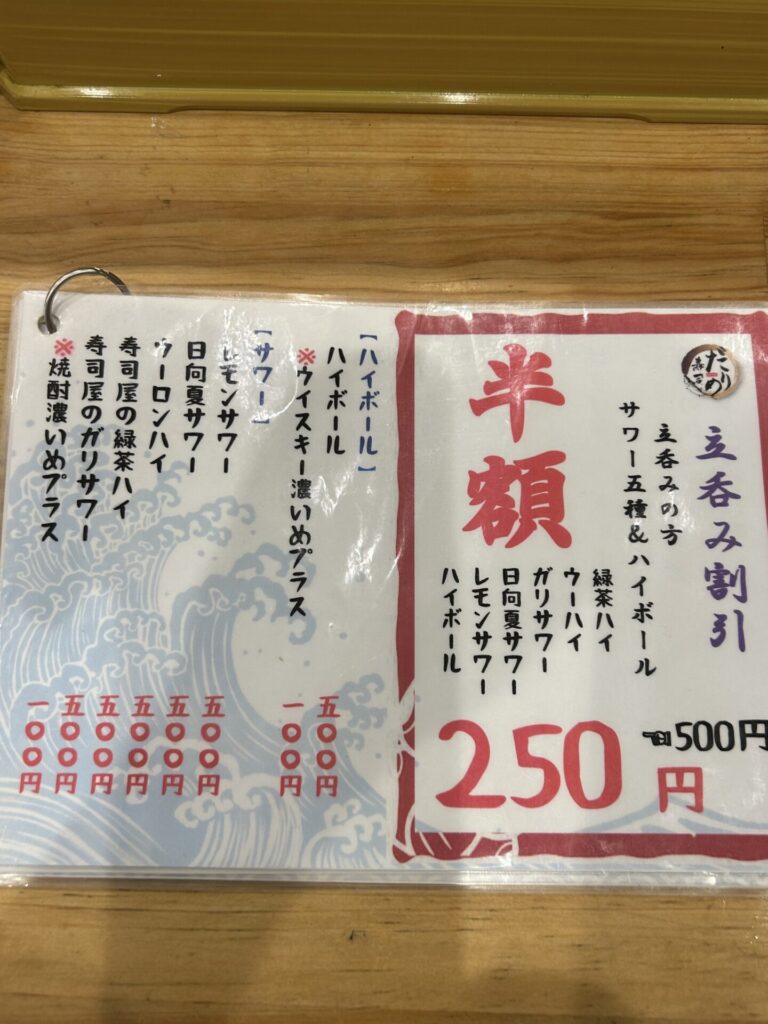 だり寿司め
立呑み割引
立呑みの方
サワー五種&ハイボール
半額
緑茶ハイ
ウーハイ
ガリサワー
日向夏サワー
レモンサワー
ハイボール
500円
250円
【ハイボール】
ハイボール 五〇〇円
※ウイスキー濃いめプラス 一〇〇円
【サワー】
レモンサワー 五〇〇円
日向夏サワー 五〇〇円
ウーロンハイ 五〇〇円
寿司屋の緑茶ハイ 五〇〇円
寿司屋のガリサワー 五〇〇円
※焼酎濃いめプラス 一〇〇円